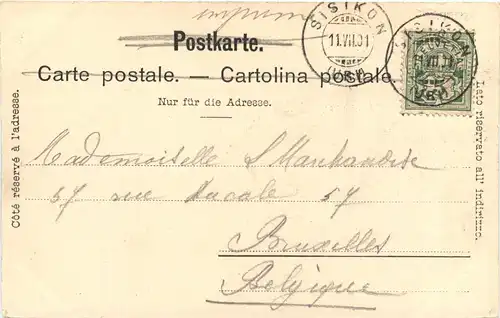 imprimé
Postkarte.
SISIKON
11.VII.01
SISIKON
Carte postale. — Cartolina postale.
Nur für die Adresse.
Côté réservé à l'adresse.
Lato riservato all' indirizzo.
Mademoiselle S Marchandise
57 rue Ducale 57
Bruxelles
Belgique